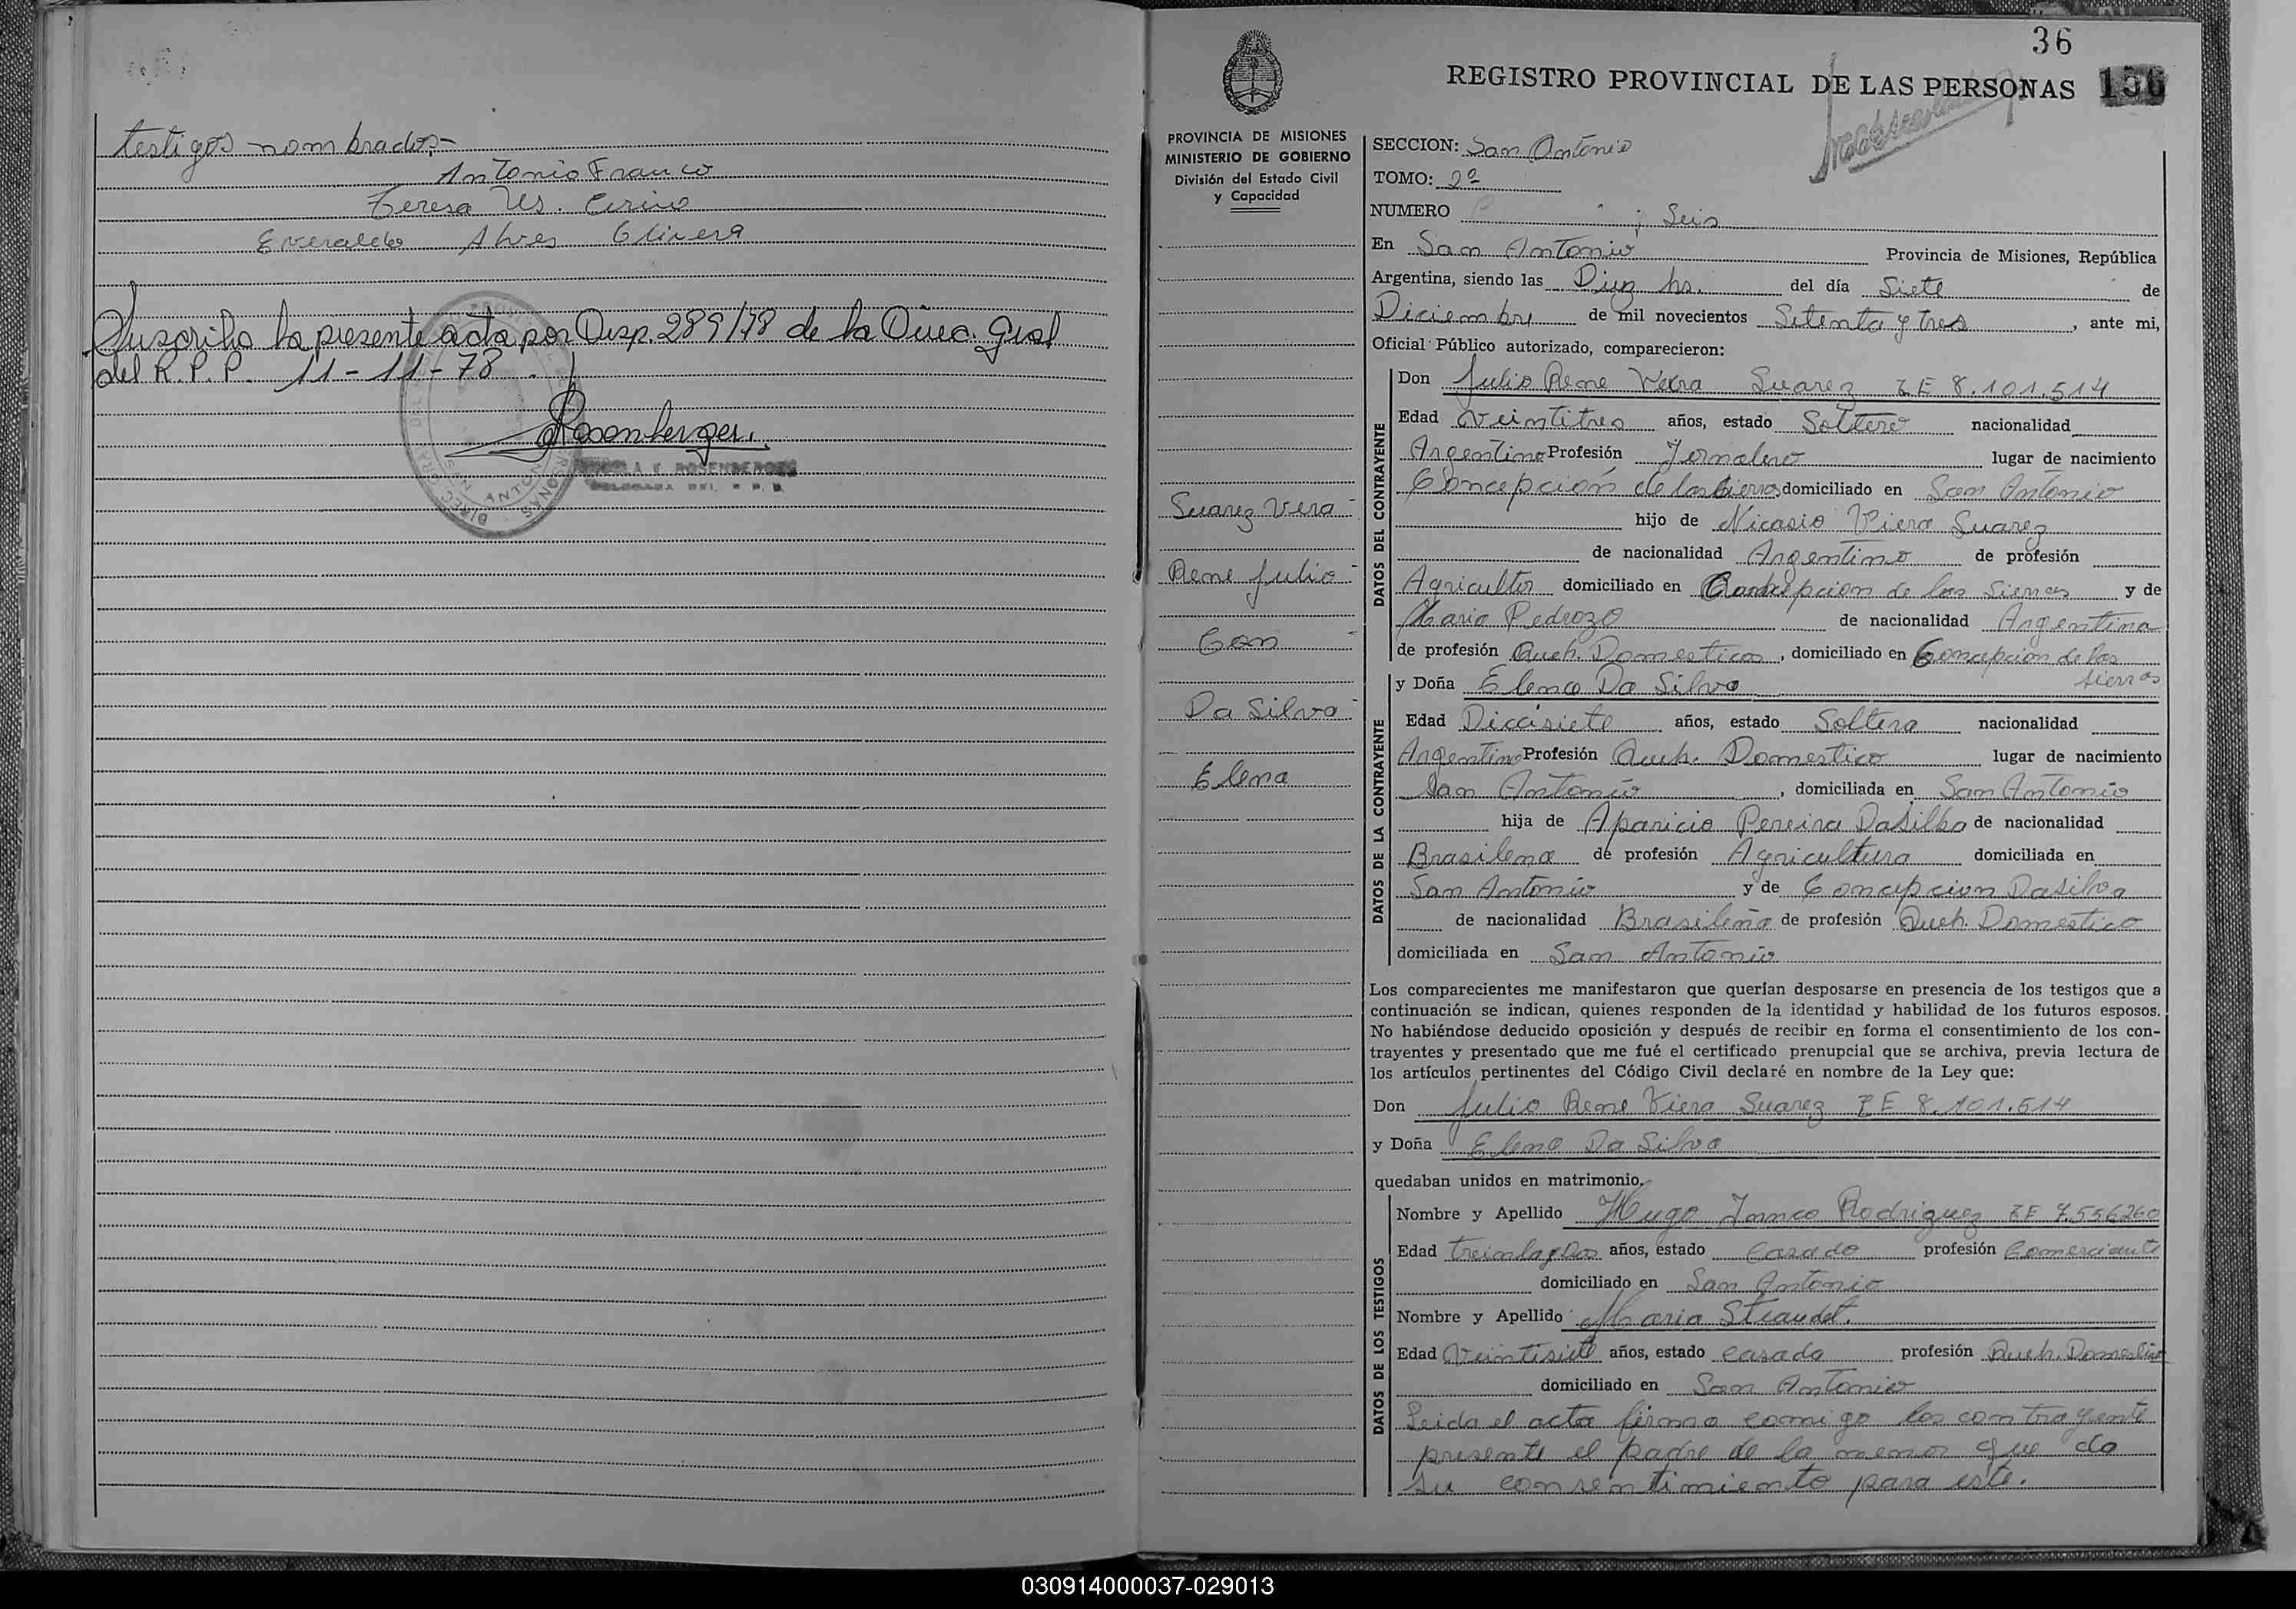 testigos nombrados.-
Antonio Franco
Teresa
Alves Olivera
Suscribo la presente acta por Disp. 289/78 de la Direc. Gral
del R. P. P. 11-11-78.
Rosenberger.
SAN ANTONIO
ROSENBERGER
36
REGISTRO PROVINCIAL DE LAS PERSONAS 156
PROVINCIA DE MISIONES
MINISTERIO DE GOBIERNO
División del Estado Civil
y Capacidad
Suarez Vera
Rene Julio
Con
Da Silva
Elena
SECCION: San Antonio
TOMO: 2º
NUMERO ; Seis
En San Antonio Provincia de Misiones, República
Argentina, siendo las Diez hs. del día Siete de
Diciembre de mil novecientos Setenta y tres, ante mi,
Oficial Público autorizado, comparecieron:
DATOS DEL CONTRAYENTE
Don Julio Rene Suarez LE 8.101.514
Edad Veintitres años, estado Soltero nacionalidad
Argentino Profesión Jornalero lugar de nacimiento
Concepción de las Sierras domiciliado en San Antonio
hijo de Nicasio Viera Suarez
de nacionalidad Argentino de profesión
Agricultor domiciliado en Concepcion de las Sierras y de
Maria Pedrozo de nacionalidad Argentina
de profesión Queh. Domesticos, domiciliado en Concepcion de las
sierras
DATOS DE LA CONTRAYENTE
y Doña Elena Da Silva
Edad Diecisiete años, estado Soltera nacionalidad
Argentina Profesión Queh. Domestico lugar de nacimiento
San Antonio, domiciliada en San Antonio
hija de Aparicio Pereira DaSilva de nacionalidad
Brasilena de profesión Agricultura domiciliada en
San Antonio y de Concepcion Dasilva
de nacionalidad Brasileña de profesión Queh. Domestico
domiciliada en San Antonio
Los comparecientes me manifestaron que querían desposarse en presencia de los testigos que a
continuación se indican, quienes responden de la identidad y habilidad de los futuros esposos.
No habiéndose deducido oposición y después de recibir en forma el consentimiento de los con-
trayentes y presentado que me fué el certificado prenupcial que se archiva, previa lectura de
los artículos pertinentes del Código Civil declaré en nombre de la Ley que:
Don Julio Rene Viera Suarez LE 8.101.514
y Doña Elena Da Silva
quedaban unidos en matrimonio.
DATOS DE LOS TESTIGOS
Nombre y Apellido Hugo Rodriguez LE 7.556260
Edad treinta y Dos años, estado Casado profesión Comerciante
domiciliado en San Antonio
Nombre y Apellido Maria
Edad Veintisiete años, estado casada profesión Queh. Domestico
domiciliado en San Antonio
Leida el acta firma comigo los contrayente
presente el padre de la menor que da
su consentimiento para este.
030914000037-029013